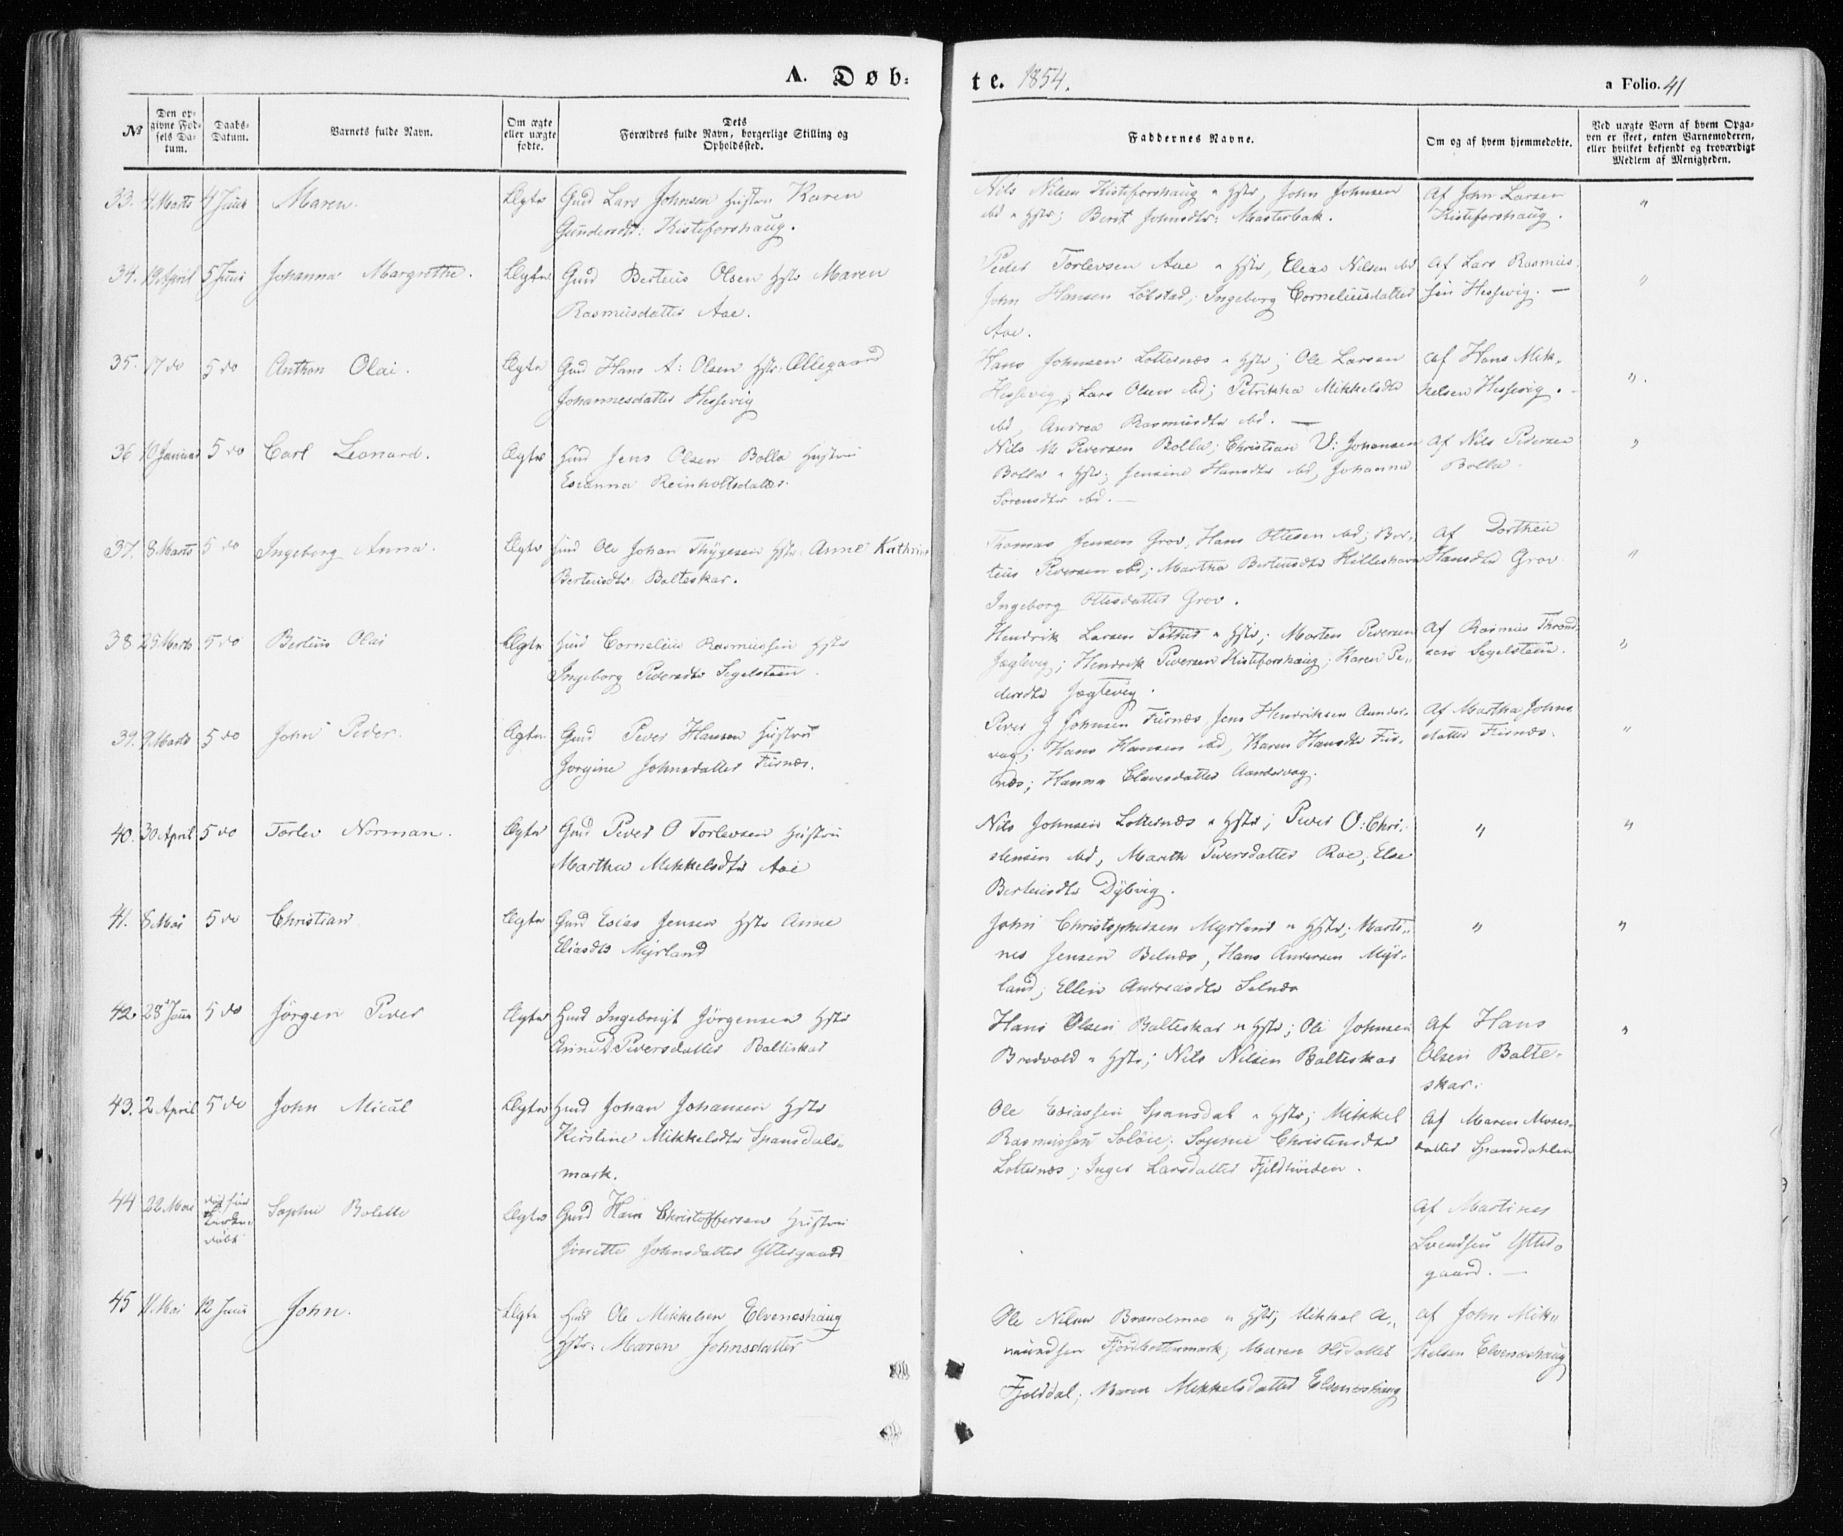 A. Døb-
te. 1854.
a Folio. 41
No
Den opgivne Fødsels Datum.
Daabs-Datum.
Varnets fulde Navn.
Om ægte eller uægte fødte.
Dets Forældres fulde Navn, borgerlige Stilling og Opholdssted.
Faddernes Navne.
Om og af hvem hjemmedøbte.
Ved uægte Børn af hvem Opgaven er skeet, enten Barnemoderen, eller hvilket bekjendt og troværdigt Medlem af Menigheden.
33. 4 Marts 4 Juni Maren. Ægte
Gmd Lars Johnsen Hustru Karen
Gundersdt: Kisteforshaug.
Nils Nilsen Kisteforshaug " Hstr, John Johnsen
ibd " Hstr; Berit Johnsdtr: Masterbak.
Af John Larsen
Kisteforshaug. "
34. 19 April 5 Juni Johanna Margrethe. Ægte
Gmd Berteus Olsen Hstr Maren
Rasmusdatter Aae.
Peder Torlevsen Aae " Hstr, Elias Nilsen ibd
John Hansen Løbstad; Ingeborg Corneliusdatter
Aae.
Af Lars Rasmus-
sen Hessevig. — "
35. 17 do 5 do Anthon Olai. Ægte
Gmd Hans A: Olsen Hstr: Ellegaard
Johannesdatter Hessevig
Hans Johnsen Lotternæs " Hstr; Ole Larsen
Hessevig; Lars Olsen ibd; Petrikka Mikkelsdtr
ibd, Andrea Rasmusdtr ibd. —
Af Hans Mik-
kelsen Hessevig. "
36 10 Januar 5 do Carl Leonard. Ægte
Hmd Jens Olsen Bolla Hustru
Esianna Reinholtsdatter.
Nils M Pedersen Bolla; Christian U: Johansen
Bolla " Hstr; Jensine Hansdtr ibd, Johanna
Sørensdtr ibd. —
Af Nils Pedersen
Bolla. "
37. 8 Marts 5 do Ingeborg Anna. Ægte
Hmd Ole Johan Thygesen Hstr: Anne Kathrine
Berteusdtr: Balteskar.
Thomas Jensen Grov, Hans Ottesen ibd; Ber-
teus Pedersen ibd; Martha Berteusdtr Hilleshavn
Ingeborg Ottesdatter Grov.
Af Dorthea
Hansdtr Grov "
38 25 Marts 5 do Berteus Olai Ægte
Hmd Cornelius Rasmussen Hstr
Ingeborg Pedersdtr Segelsteen.
Hendrik Larsen " Hstr; Morten Pedersen
Jægtevig; Hendrik Pedersen Kisteforshaug; Karen Pe-
dersdtr Jægtevig.
Af Rasmus Thrond-
sen Segelsteen. "
39. 9 Marts 5 do John Peder. Ægte
Gmd Peder Hansen Hustru
Jorgine Johnsdatter Furnæs.
Peder J Johnsen Furnæs, Jens Hendriksen Aander-
vag; Hans Hansen ibd, Karen Hansdtr Fur-
næs; Hanna Elavesdatter Aandervag.
Af Martha Johns-
datter Furnæs. "
40. 30 April 5 do Torlev Norman. Ægte
Gmd Peder O Torlevsen Hustru
Martha Mikkelsdtr Aae
Nils Johnsen Lotternæs " Hstr; Peder O: Chri-
stensen ibd, Marith Pedersdatter Aae, Else
Berteusdtr Dybvig.
" "
41. 8 Mai 5 do Christian Ægte
Gmd Esias Jensen Hstr Anne
Eliasdtr Myrland
John Christophersen Myrland " Hstr; Marti-
nes Jensen Selnæs, Hans Andersen Myr-
land; Ellen Andreasdtr Selnæs
" "
42. 28 Jan 5 do Jørgen Peder Ægte
Hmd Ingebrigt Jørgensen Hstr
Anne P Pedersdatter Balteskar
Hans Olsen Balteskar " Hstr; Ole Johnsen
Bredvold " Hstr; Nils Nilsen Balteskar
Af Hans
Olsen Balte-
skar. "
43. 2 April 5 do John Mical Ægte
Hmd Johan Johansen Hstr
Kirstine Mikkelsdtr Spansdals-
mark.
Ole Esiassen Spansdal " Hstr; Mikkel
Rasmussen Soløie; Sophie Christensdtr
Lotternæs; Inger Larsdatter Fjeldhviden.
Af Maren Moses-
datter Spansdahlen
44 22 Mai død før
døbt
Sophie Bolette Ægte
Gmd Hans Christoffersen Hustru
Jonette Johnsdatter Yttergaard
Af Martines
Svendsen Ytter-
gaard. —
45 11 Mai 12 Juni John. Ægte
Hmd Ole Mikkelsen Elveneshaug
Hstr: Maren Johnsdatter
Ole Nilsen Brandmoe " Hstr; Mikkel A-
mundsen Fjordbottenmark; Maren Olsdatter
Fjelddal; Maren Mikkelsdatter Elveneshaug
Af John Mik-
kelsen Elveneshaug